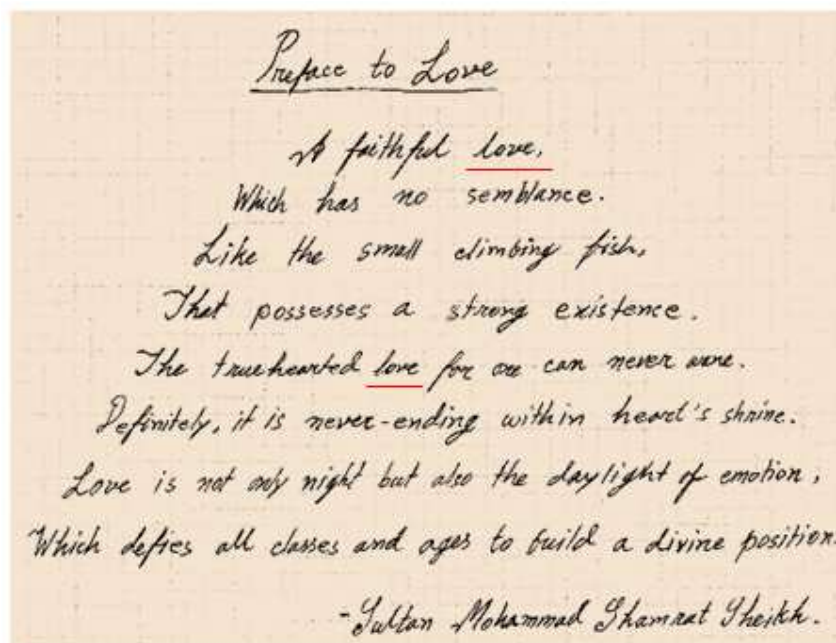 Preface to Love
A faithful love,
Which has no semblance.
Like the small climbing fish,
That possesses a strong existence.
The truehearted love for one can never wane.
Definitely, it is never-ending within heart's shrine.
Love is not only night but also the daylight of emotion,
Which defies all classes and ages to build a divine position.
-Sultan Mohammad Shamrat Sheikh.